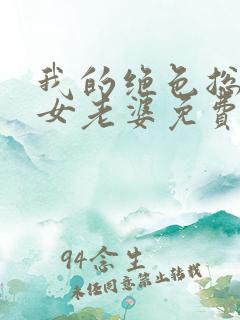 我的绝色总
女老婆免費
94念生
未经同意禁止转载